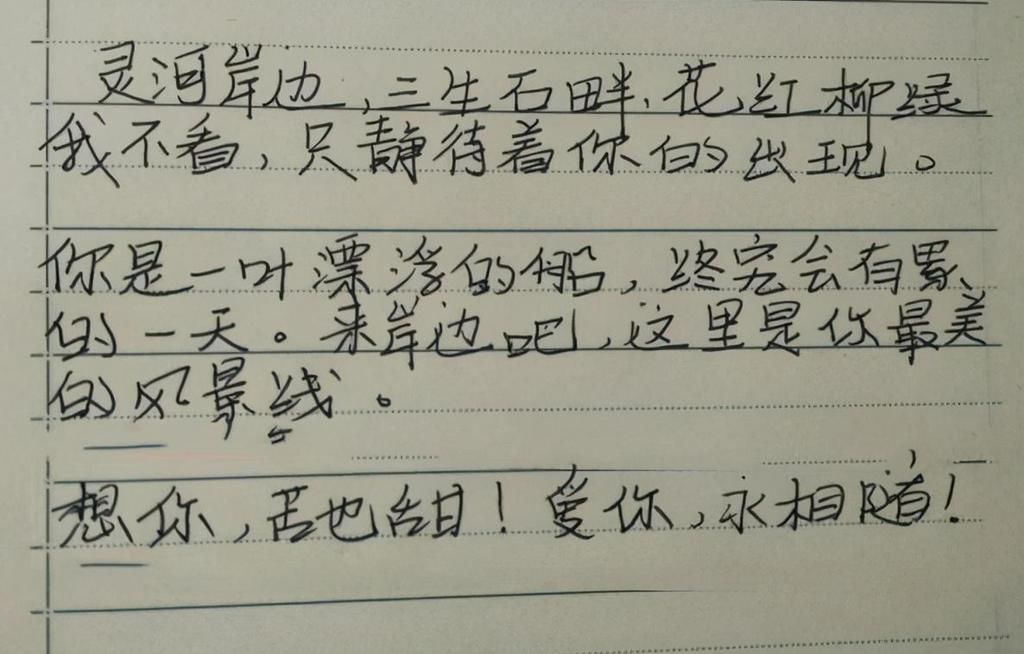 灵河岸边,三生石畔、花红柳绿
我不看,只静待着你的出现。
你是一叶漂浮的船,终究会有累
的一天。来岸边吧,这里是你最美
的风景线。
想你,苦也甜!爱你,永相随!